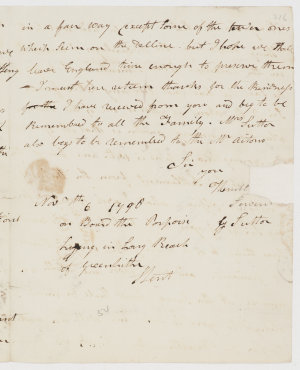 in a fair way except some of the ones
which seem on the decline. but I hope we shall
leave England time enough to preserve them
I must here return thanks for the kindness
I have received from you and beg to be
remembered by all the Family. Mrs Sutter
also begs to be remembered to the
Sir
you
Humble
Servant
G Sutter
Novr 6th 1798
on Board the Porpoise
Laying in Long Reach
of Greenhithe
Kent